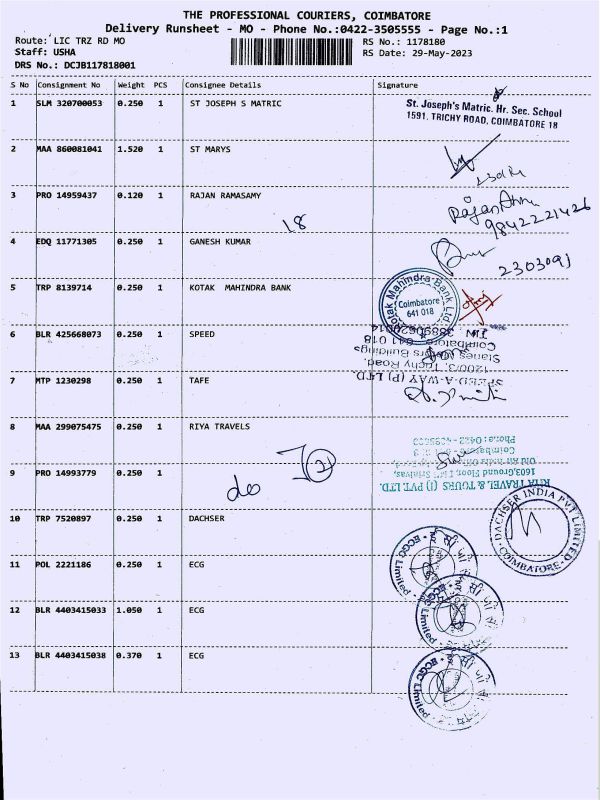 THE PROFESSIONAL COURIERS, COIMBATORE
Delivery Runsheet - MO - Phone No.:0422-3505555 - Page No.:1
Route: LIC TRZ RD MO
RS No.: 1178180
Staff: USHA
RS Date: 29-May-2023
DRS No.: DCJB117818001
S No Consignment No Weight PCS Consignee Details Signature
1 SLM 320700053 0.250 1 ST JOSEPH S MATRIC
St. Joseph's Matric. Hr. Sec. School
1591, TRICHY ROAD, COIMBATORE 18
2 MAA 860081041 1.520 1 ST MARYS
3 PRO 14959437 0.120 1 RAJAN RAMASAMY
9842221426
18
4 EDQ 11771305 0.250 1 GANESH KUMAR
2303091
5 TRP 8139714 0.250 1 KOTAK MAHINDRA BANK
Kotak Mahindra Bank Ltd.
Coimbatore
641 018
6 BLR 425668073 0.250 1 SPEED
Coimbatore 641 018
1200/3, Trichy Road,
SPEED-A-WAY (P) LTD.
7 MTP 1230298 0.250 1 TAFE
8 MAA 299075475 0.250 1 RIYA TRAVELS
RIYA TRAVEL & TOURS (I) PVT. LTD.
1603, Ground Floor,
9 PRO 14993779 0.250 1 do
21
10 TRP 7520897 0.250 1 DACHSER
DACHSER INDIA PVT LIMITED
COIMBATORE
11 POL 2221186 0.250 1 ECG
ECGC Limited
12 BLR 4403415033 1.050 1 ECG
ECGC Limited
13 BLR 4403415038 0.370 1 ECG
ECGC Limited